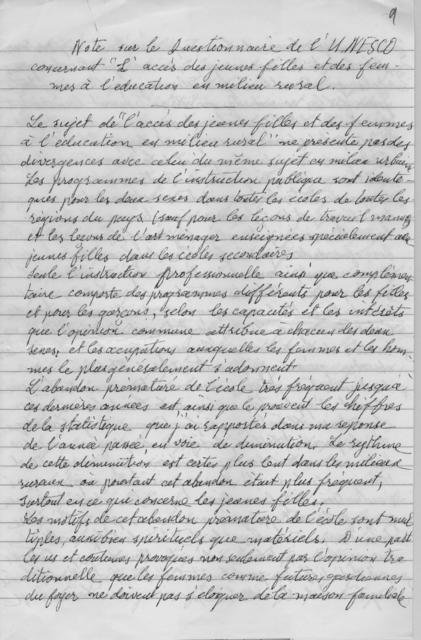 9
Note sur le Questionnaire de l'UNESCO
concernant "L'accès des jeunes filles et des fem-
mes à l'education en milieu rural.
Le sujet de "l'accès des jeunes filles et des femmes
à l'education en milieu rural" ne présente pas des
divergences avec celui du même sujet en milieu urbain
Les programmes de l'instruction publique sont identi-
ques pour les deux sexes dans toutes les écoles de toutes les
régions du pays (sauf pour les leçons de travail manuel
et les leçons de l'art ménager enseignées spécialement aux
jeunes filles dans les écoles secondaires
Seule l'instruction professionnelle ainsi que complémen-
taire comporte des programmes différents pour les filles
et pour les garçons, selon les capacités et les intérêts
que l'opinion commune attribue à chacun des deux
sexes, et les occupations auxquelles les femmes et les hom-
mes le plus généralement s'adonnent.
L'abandon prématuré de l'école très fréquent jusqu'à
ces dernières années est, ainsi que le prouvent les chiffres
de la statistique que j'ai rapportés dans ma réponse
de l'année passée, en voie de diminution. Le rythme
de cette diminution est certes plus lent dans les milieux
ruraux, où pourtant cet abandon était plus fréquent,
surtout en ce que concerne les jeunes filles.
Les motifs de cet abandon prématuré de l'école sont mul-
tiples, aussi bien spirituels que matériels. D'une part
les us et coutumes provoqués non seulement par l'opinion tra-
ditionnelle que les femmes comme futures gardiennes
du foyer ne doivent pas s'éloigner de la maison familiale